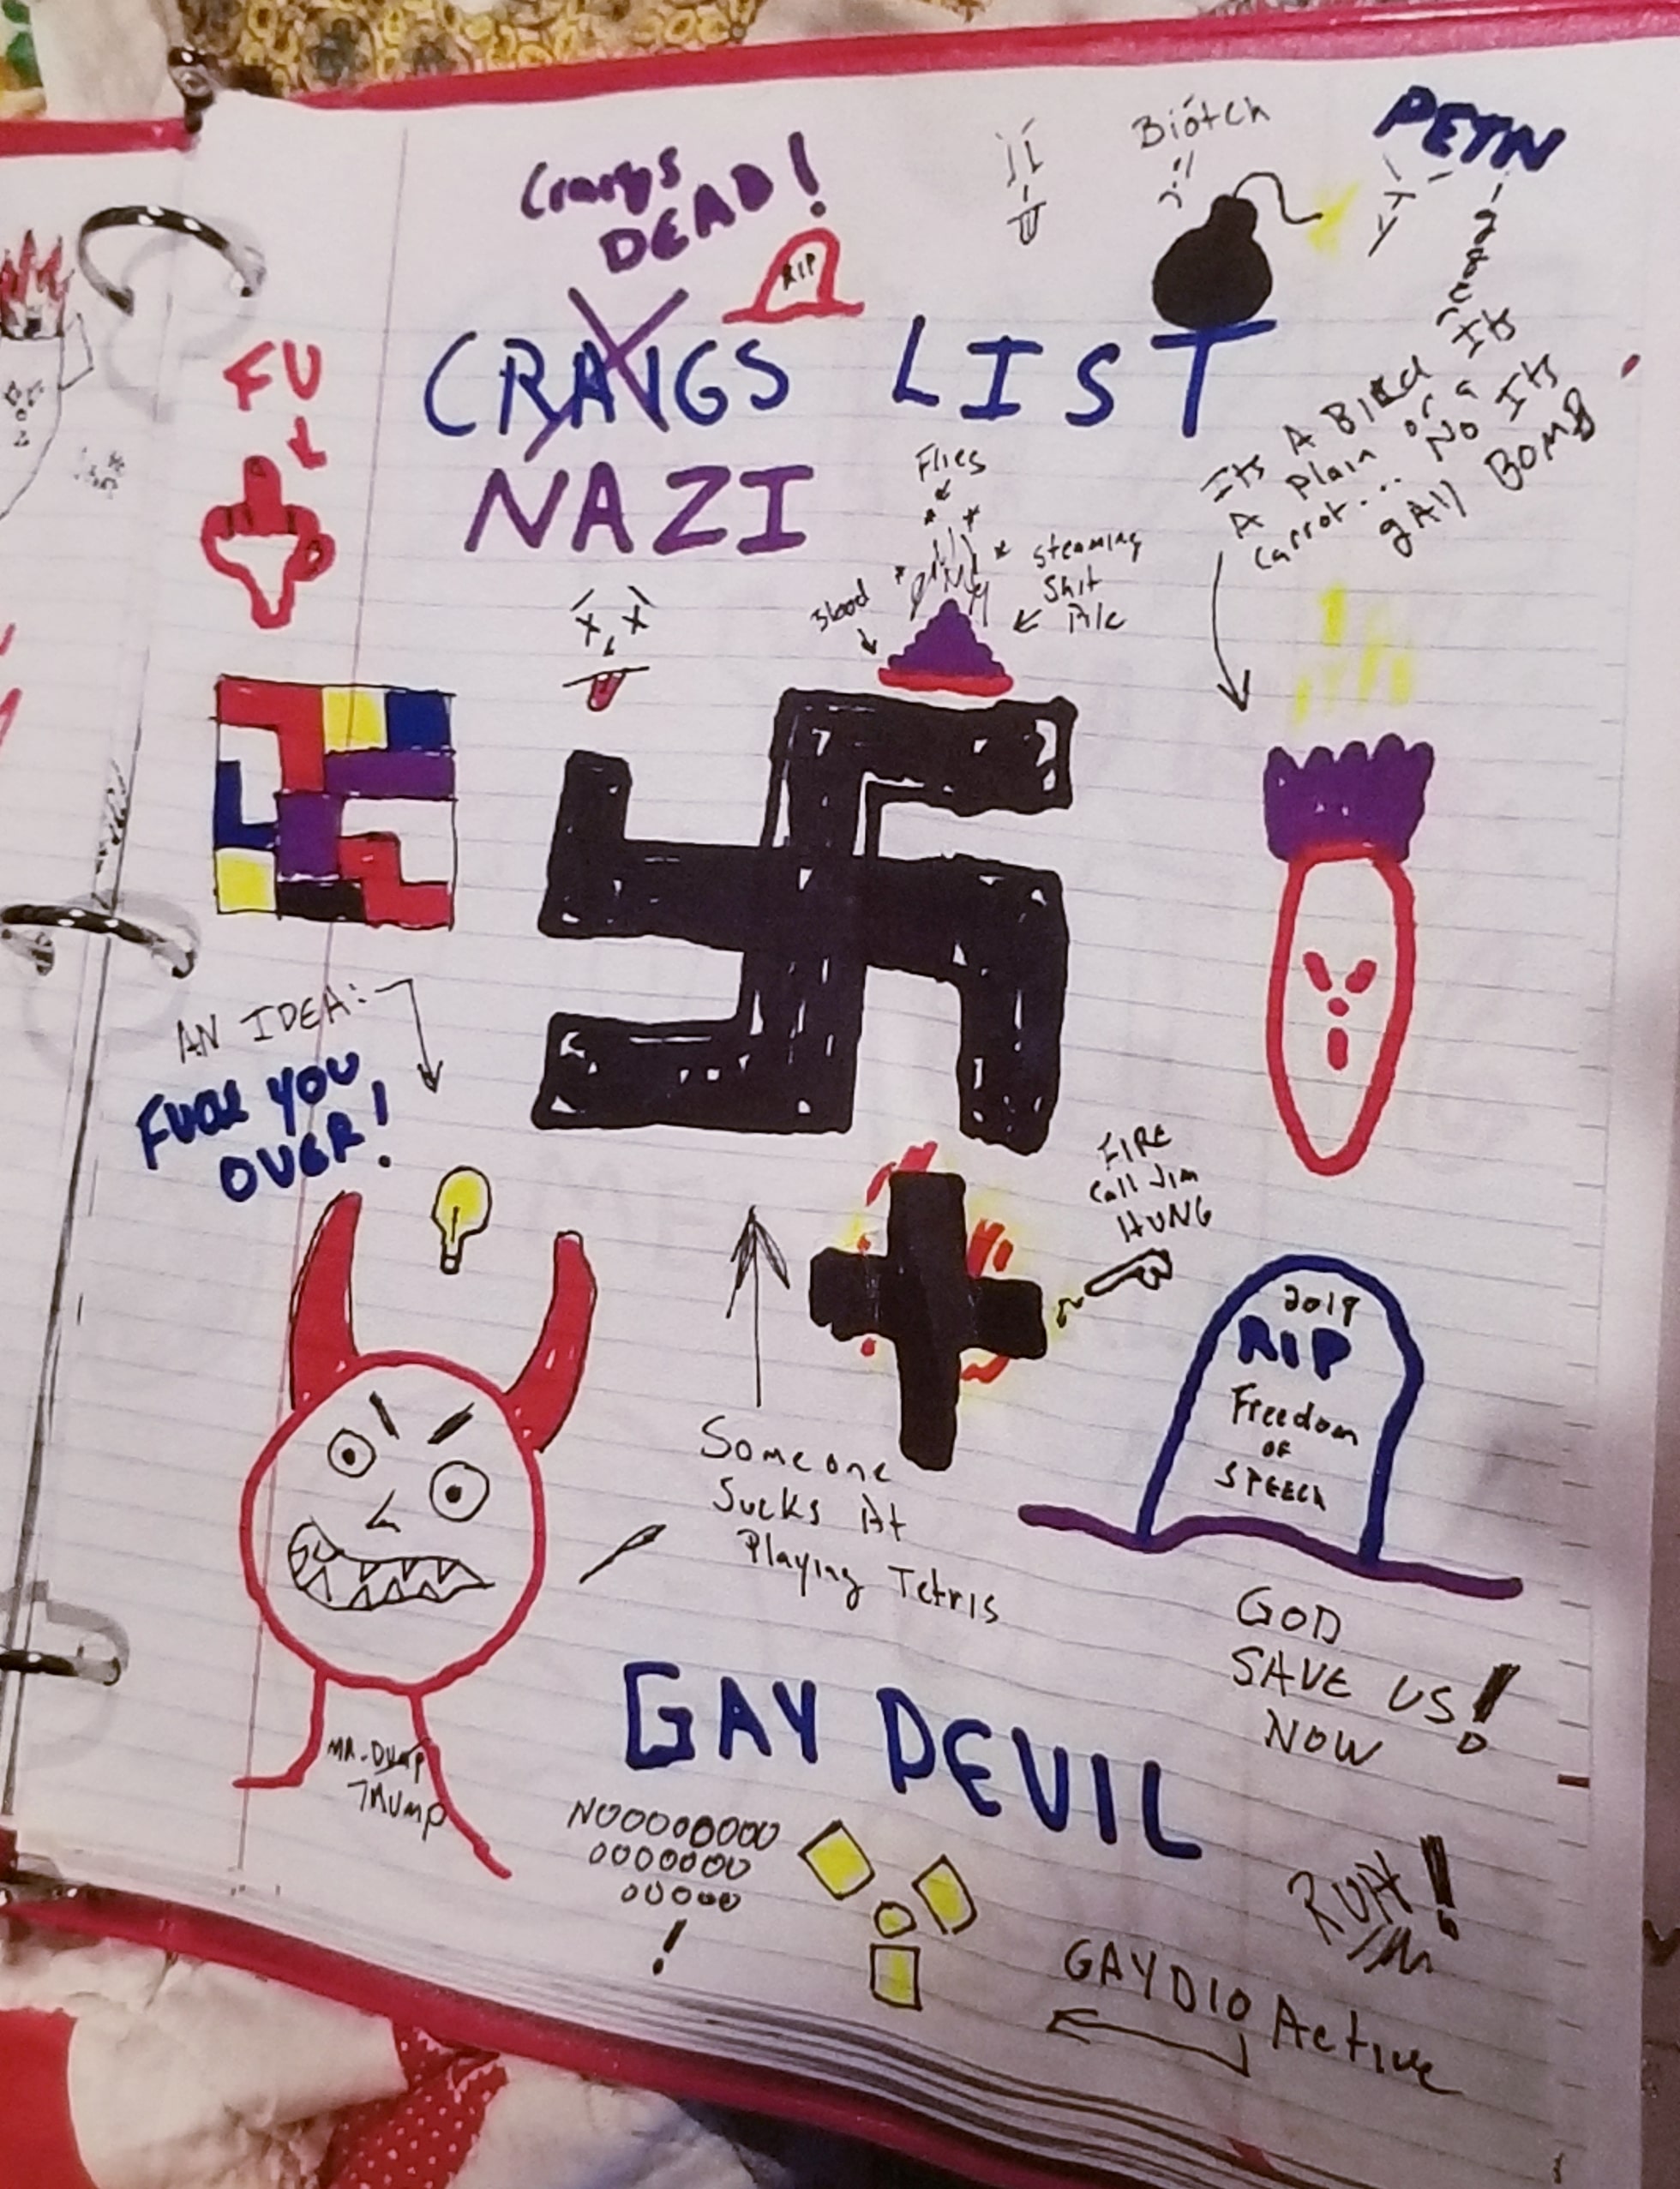 Craigs
DEAD!
RIP
Biotch
PETN
FU
CRAIGS LIST
NAZI
Its A Bird Its
A Plain or a
Carrot... No Its
gAy BOMB
Flies
Steaming
Shit
Pile
Blood
AN IDEA:
FUCK YOU
OVER!
FIRE
Call Jim
HUNG
2019
RIP
Freedom
OF
SPEECH
Someone
Sucks At
Playing Tetris
GOD
SAVE US!
NOW
GAY DEVIL
MR. DUMP
TRUMP
RUN!
GAYDIO Active